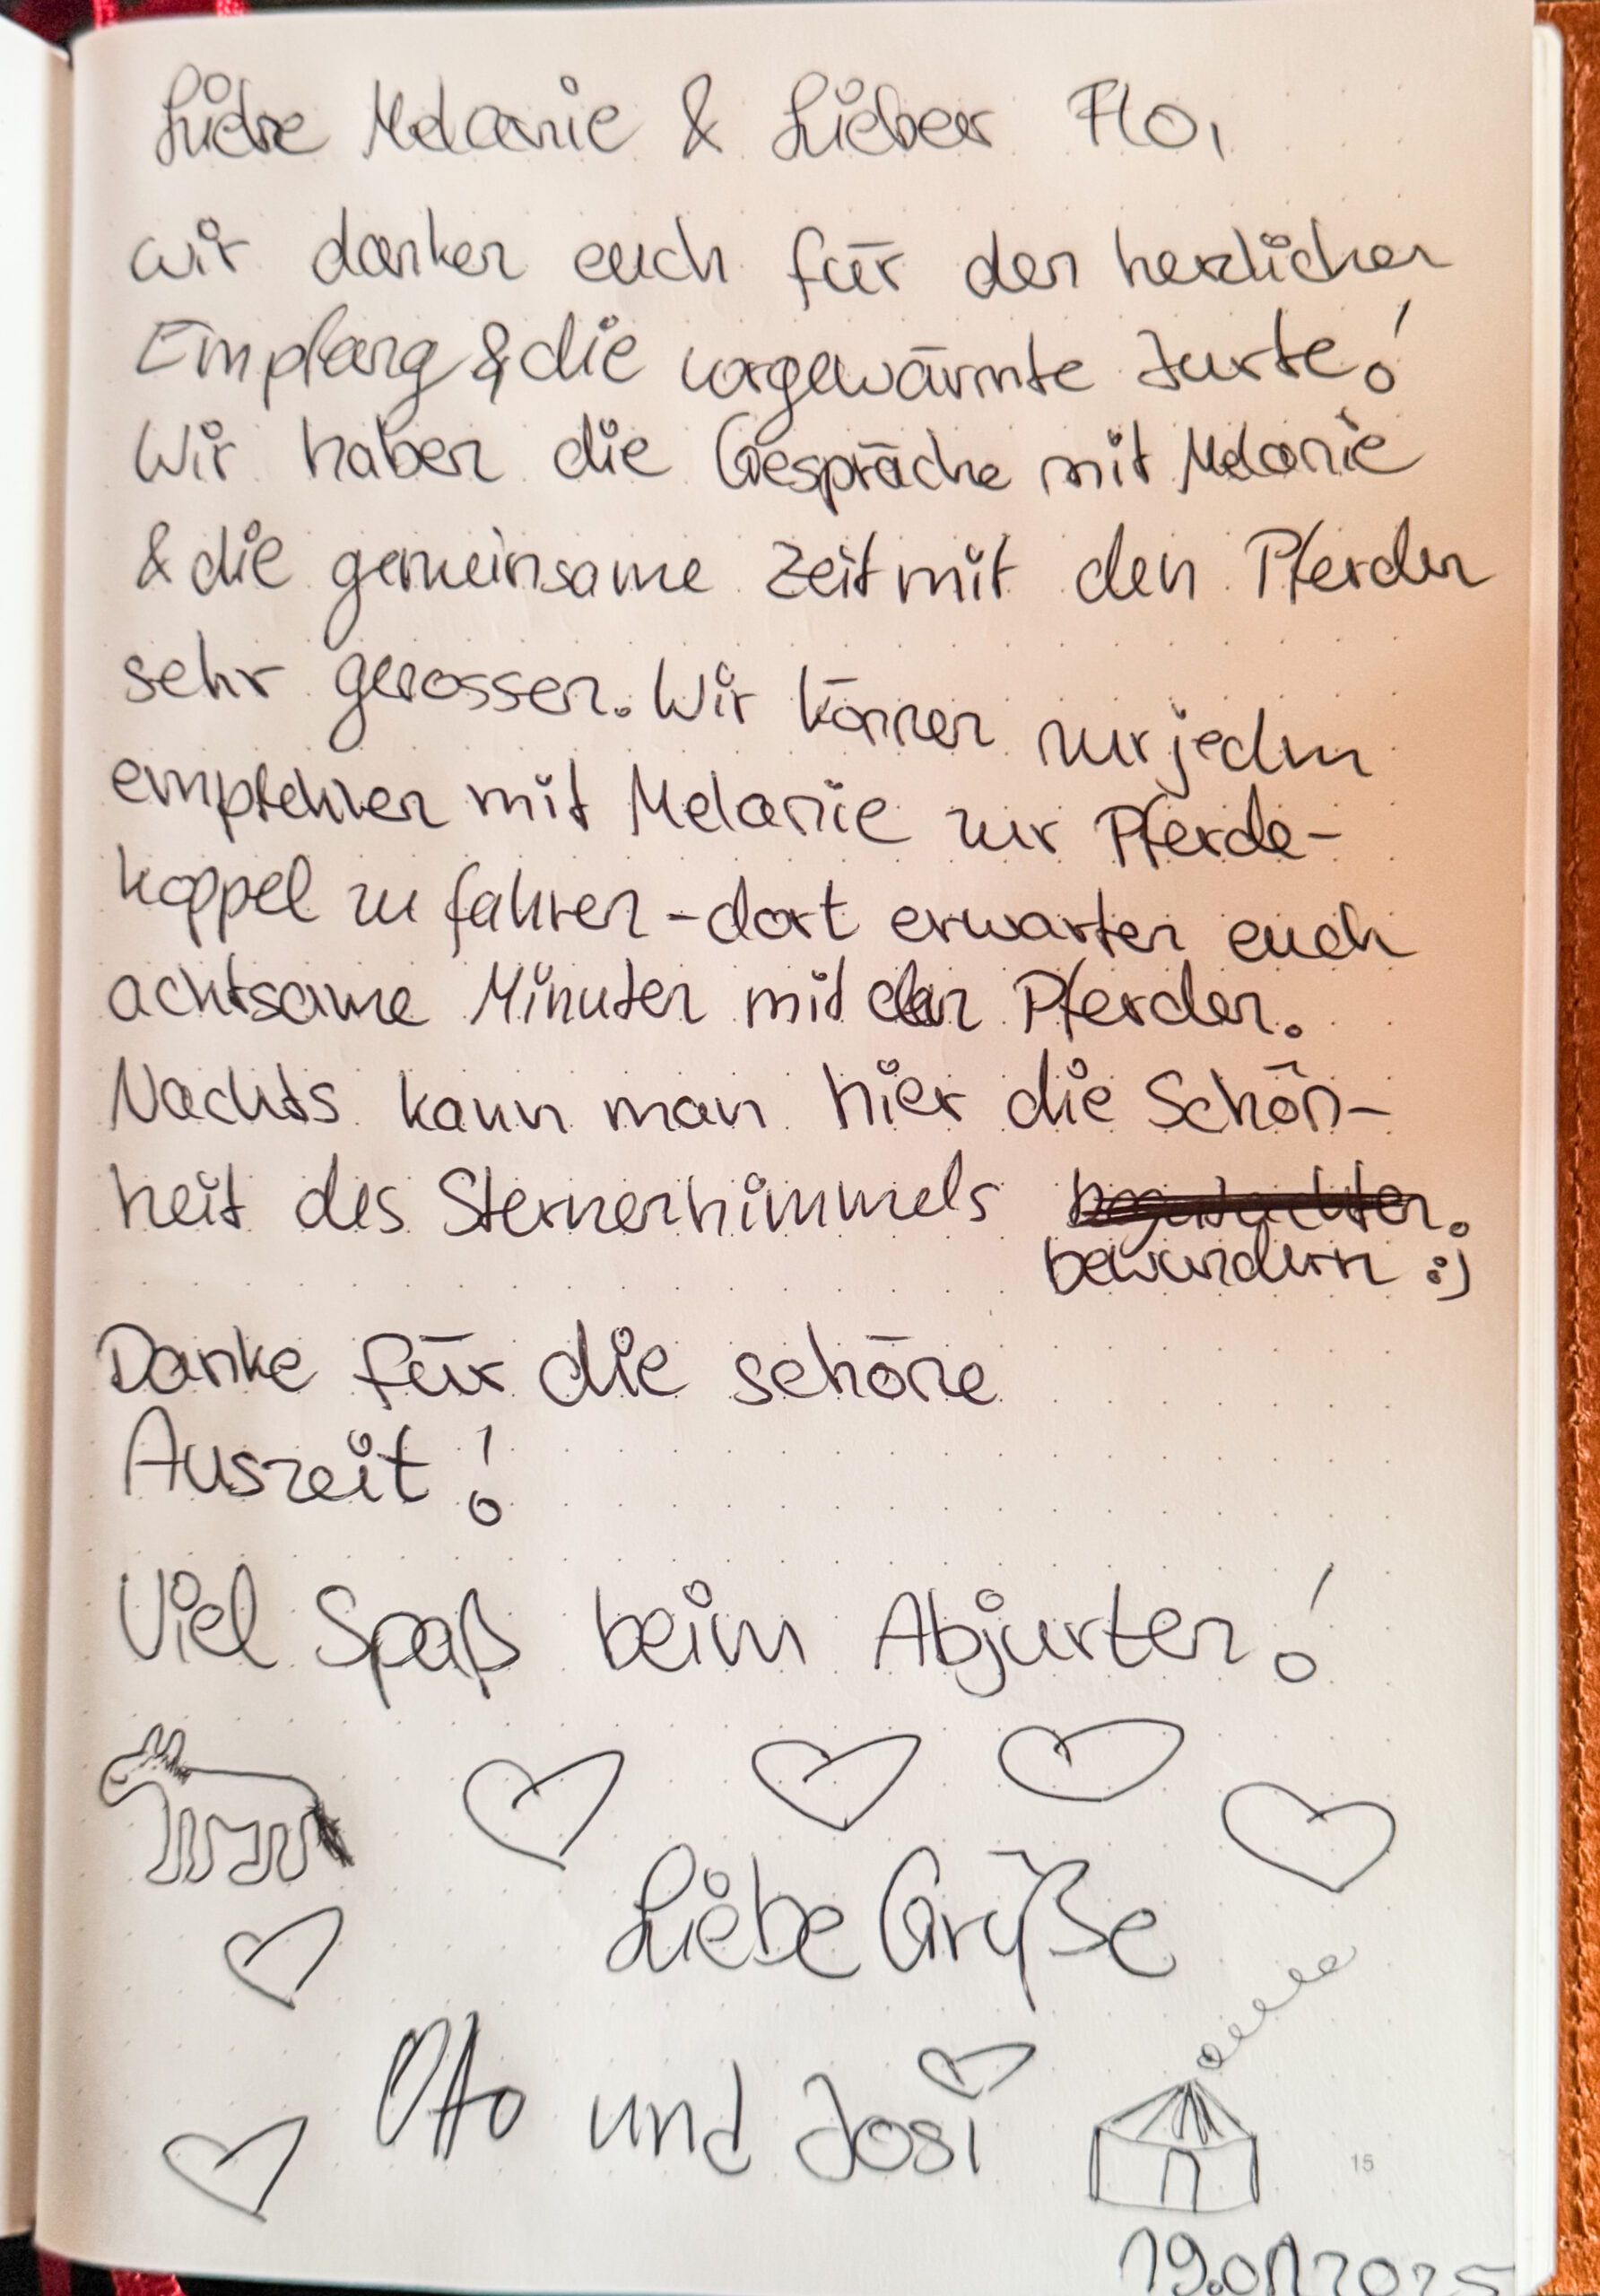 Liebe Melanie & Lieber Flo,
wir danken euch für den herzlichen
Empfang & die vorgewärmte Jurte!
Wir haben die Gespräche mit Melanie
& die gemeinsame Zeit mit den Pferden
sehr genossen. Wir können nur jedem
empfehlen mit Melanie zur Pferde-
koppel zu fahren - dort erwarten euch
achtsame Minuten mit den Pferden.
Nachts kann man hier die Schön-
heit des Sternenhimmels begutachten.
bewundern :)
Danke für die schöne
Auszeit!
Viel Spaß beim Abjurten!
Liebe Grüße
Otto und Josi
15
19.01.2025